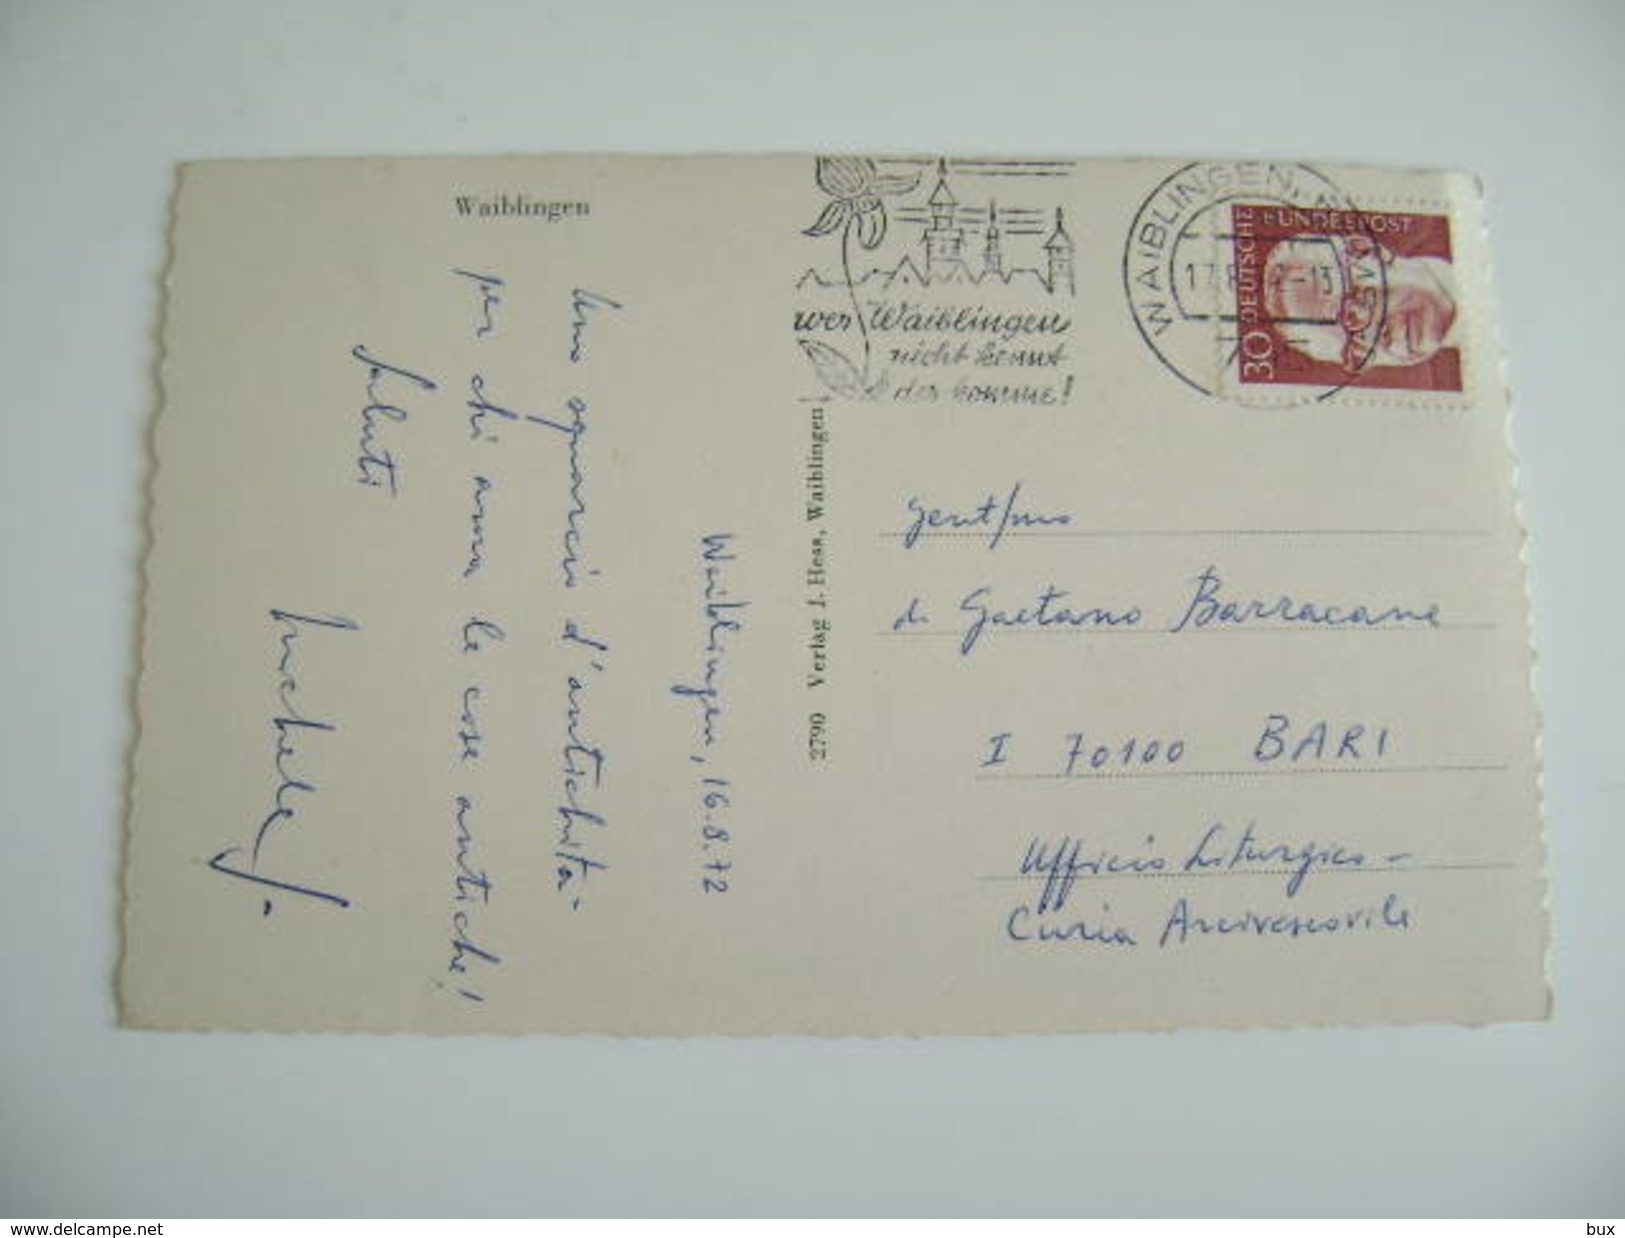 Waiblingen
Waiblingen, 16.8.72
Uno squarcio d'antichità -
per chi ama le cose antiche!
Saluti
Michele
2790 Verlag J. Hess, Waiblingen
wer Waiblingen
nicht kennt
der komme!
WAIBLINGEN
17.8. 2-13
DEUTSCHE BUNDESPOST
30
Gent/mo
d. Gaetano Barracane
I 70100 BARI
Ufficio Liturgico -
Curia Arcivescovile
www.delcampe.net
bux